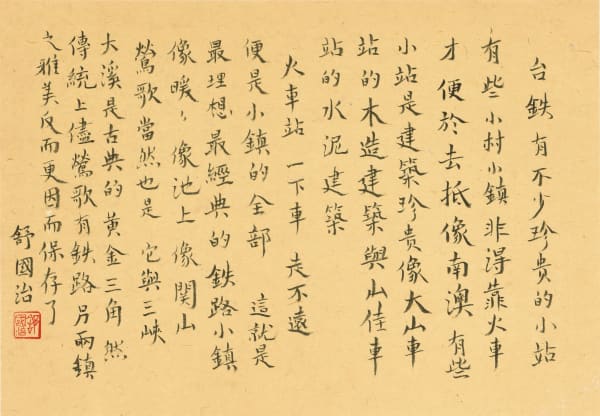 台鉄有不少珍贵的小站
有些小村小鎮 非得靠火車
才便於去抵 像南澳 有些
小站是建築珍贵 像大山車
站的木造建築與山佳車
站的水泥建築
火車站 一下車 走不遠
便是小鎮的全部 這就是
最理想最經典的鉄路小鎮
像暖、像池上 像関山
鶯歌當然也是 它與三峽
大溪是古典的黄金三角 然
傳統上儘鶯歌有鉄路 另兩鎮
之雅美反而更因而保存了
舒國治